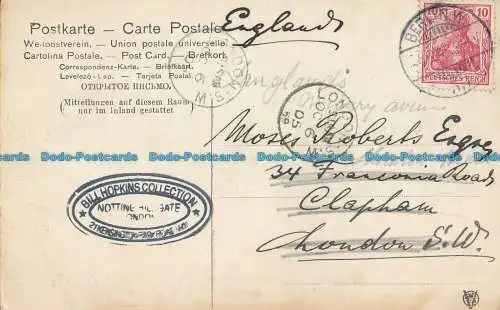 Postkarte – Carte Postale
Weltpostverein. – Union postale universelle.
Cartolina Postale. – Post Card. – Brefkort.
Correspondenz-Karte. – Briefkaart.
Levelező-Lap. – Tarjeta Postal.
ОТКРЫТОЕ ПИСЬМО.
(Mitteilungen auf diesem Raum
nur im Inland gestattet.)
England
England
LONDON. S.W
LONDON
OC
05
BERLIN.W.
10
DEUTSCHES REICH
Moses Roberts Esqre
34 Franconia Road
Clapham
London S.W.
BILL HOPKINS COLLECTION
NOTTING HILL GATE
LONDON
Dodo-Postcards Dodo-Postcards Dodo-Postcards Dodo-Postcards